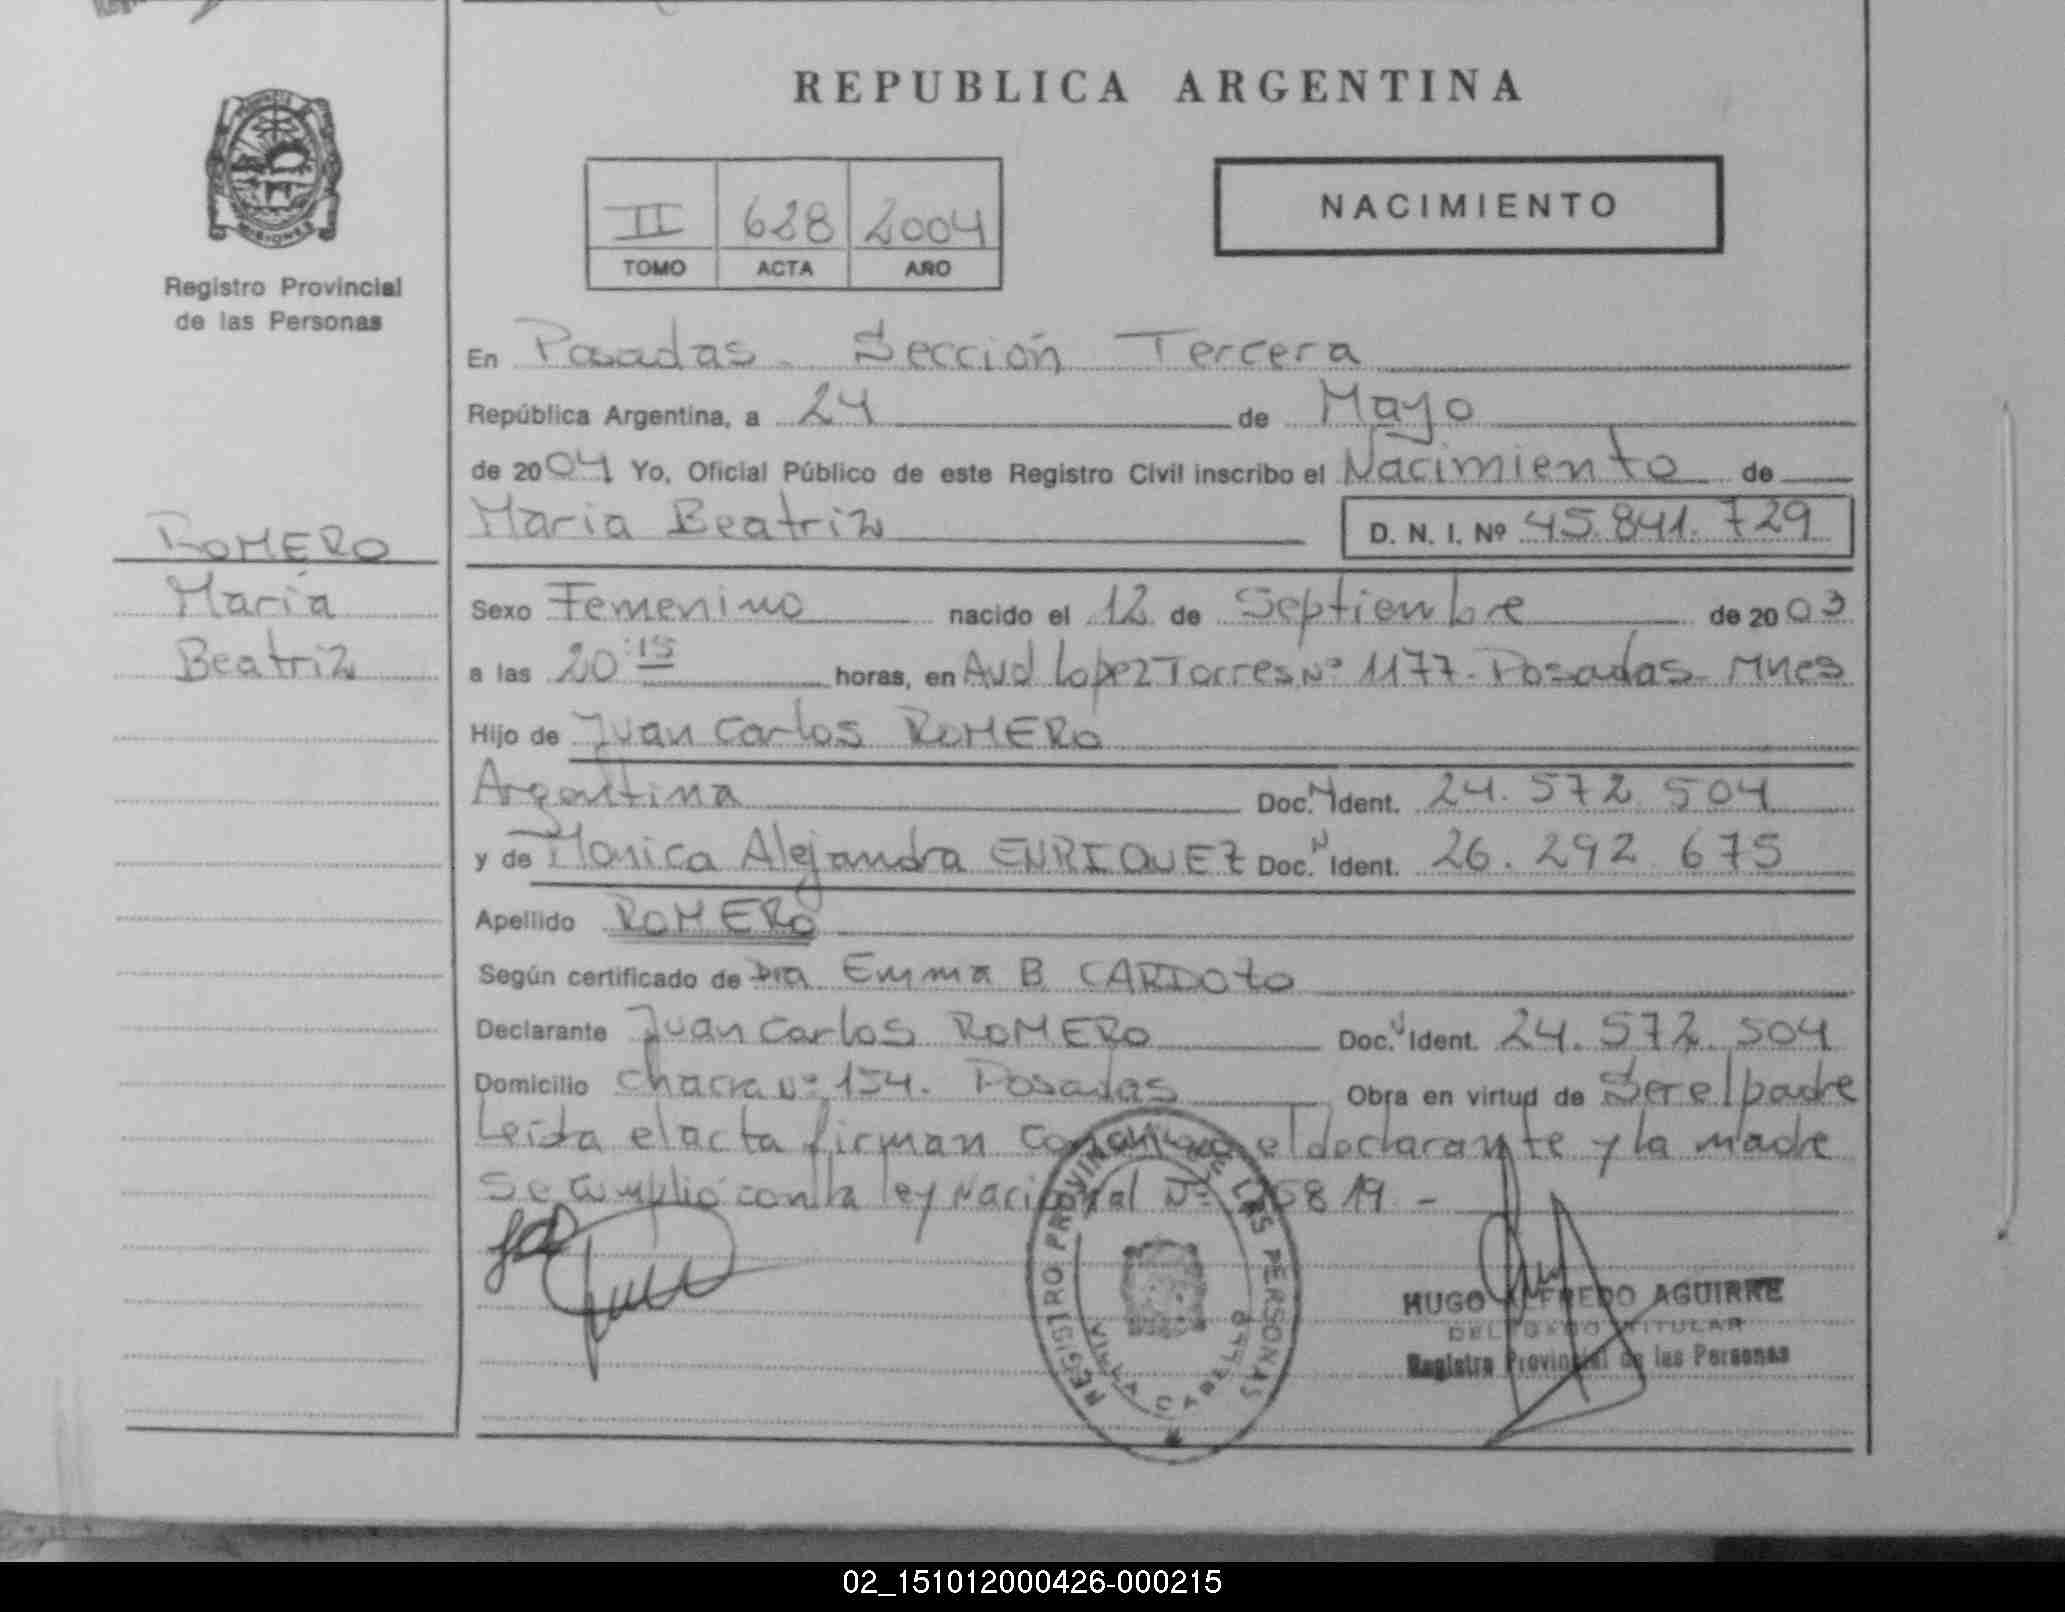 REPUBLICA ARGENTINA
NACIMIENTO
II 628 2004
TOMO ACTA AÑO
MISIONES
Registro Provincial
de las Personas
ROMERO
María
Beatriz
En Posadas - Sección Tercera
República Argentina, a 24 de Mayo
de 2004 Yo, Oficial Público de este Registro Civil inscribo el Nacimiento de
Maria Beatriz D. N. I. Nº 45.841.729
Sexo Femenino nacido el 12 de Septiembre de 2003
a las 20:15 horas, en Avd Lopez Torres Nº 1177 - Posadas - Mnes
Hijo de Juan Carlos ROMERO
Argentina Doc. N Ident. 24.572.504
y de Monica Alejandra ENRIQUEZ Doc. N Ident. 26.292.675
Apellido ROMERO
Según certificado de Dra Emma B CARDOZO
Declarante Juan Carlos ROMERO Doc. N Ident. 24.572.504
Domicilio Chacra Nº 154. Posadas Obra en virtud de Ser el padre
Leida el acta firman conmigo el declarante y la madre
Se cumplió con la ley Nacional Nº 25819 -
REGISTRO PROVINCIAL DE LAS PERSONAS
VILLA CABELLO
HUGO ALFREDO AGUIRRE
DELEGADO TITULAR
Registro Provincial de las Personas
02_151012000426-000215